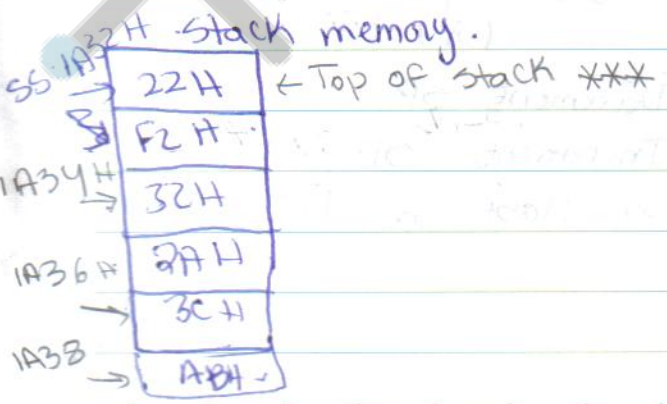 Stack memory.
SS 1A32H
22H ← Top of stack ***
F2H
1A34H
32H
1A36H
2AH
3CH
1A38
ABH